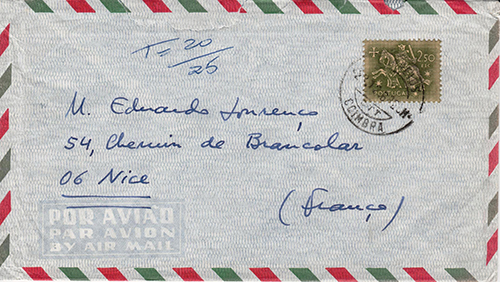 T = 20/25
2$50
PORTUGAL
COIMBRA
M. Eduardo Lourenço
54, Chemin de Brancolar
06 Nice
(França)
POR AVIÃO
PAR AVION
BY AIR MAIL